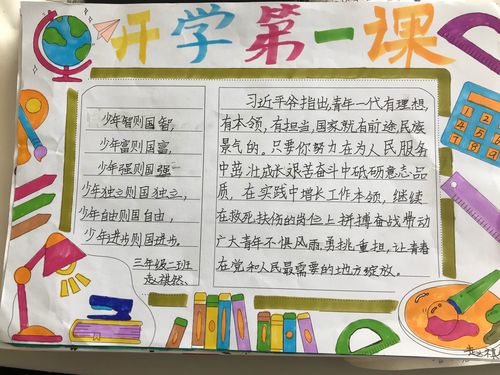 开学第一课
少年智则国智,
少年富则国富,
少年强则国强
少年独立则国独立,
少年自由则国自由,
少年进步则国进步。
三年级二班
赵祺然、
习近平爷指出,青年一代有理想,
有本领,有担当,国家就有前途,民族
景气的。只要你努力在为人民服务
中茁壮成长艰苦奋斗中砥砺意志品
质,在实践中增长工作本领,继续
在救死扶伤的岗位上拼搏奋战带动
广大青年不惧风雨勇挑重担,让青春
在党和人民最需要的地方绽放。